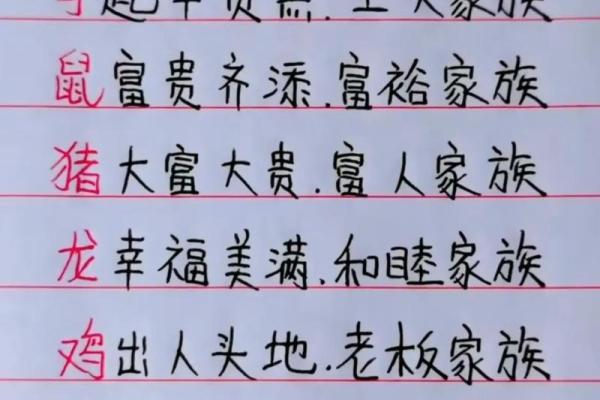 家族
鼠富贵齐添.富裕家族
猪大富大贵.富人家族
龙幸福美满.和睦家族
鸡出人头地.老板家族